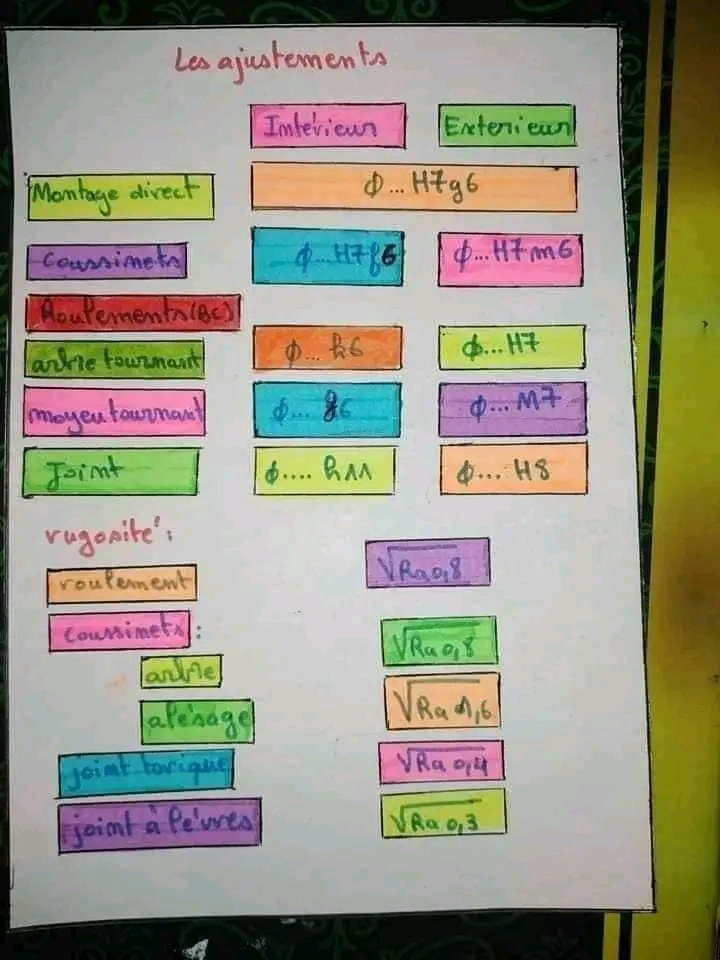 Les ajustements
Intérieur Exterieur
Montage direct ϕ... H7g6
Coussinets ϕ...H7f6 ϕ...H7m6
Roulements(BC)
arbre tournant ϕ... k6 ϕ...H7
moyeu tournant ϕ... g6 ϕ... M7
Joint ϕ.... h11 ϕ... H8
rugosité :
roulement √Ra0,8
coussinets :
arbre √Ra0,8
alésage √Ra1,6
joint torique √Ra0,4
joint à lèvres √Ra0,3